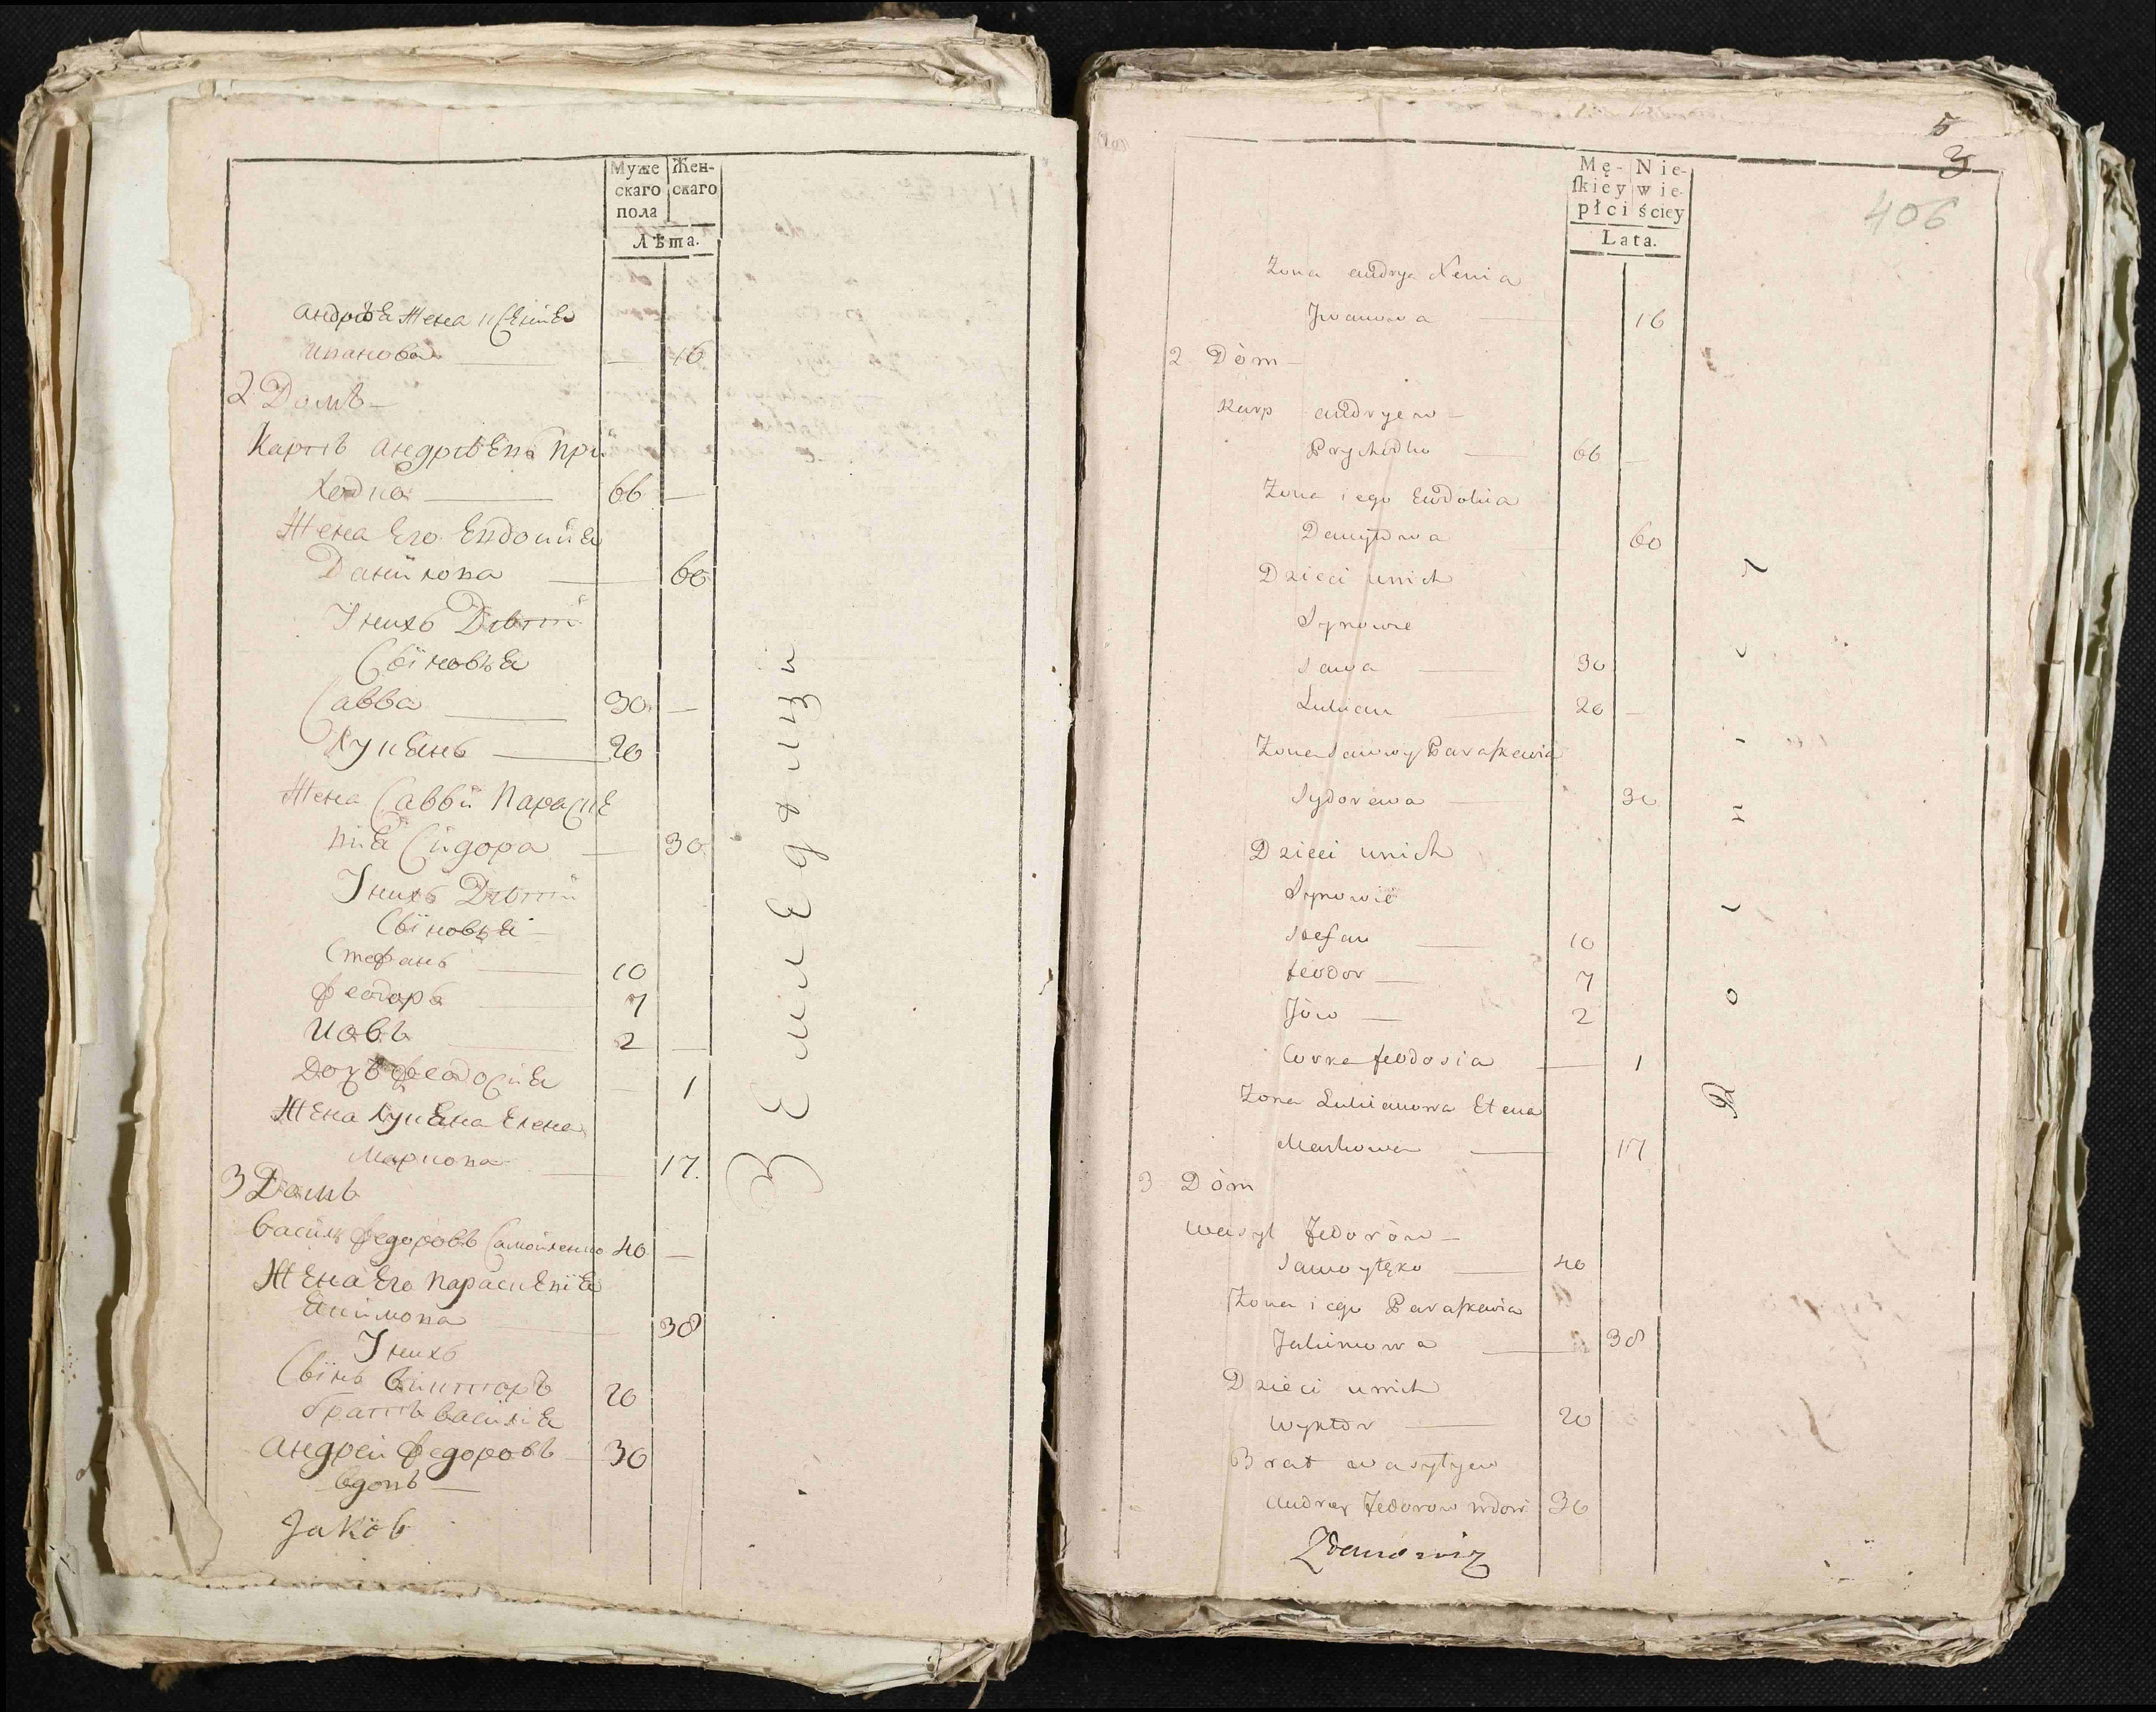 Муже
скаго
пола
Жен-
скаго
Лѣта.
Андрѣя жена Ксенія
Иванова — — 16
2 Домъ —
Карпъ Андрѣевъ При
ходко — 66 —
Жена Его Евдокия
Данилова — 60
У нихъ Дѣти
Сыновья
Савва — 30 —
Лукянъ — 20
Жена Саввы Параске
вия Сидора — 30
У нихъ Дѣти
Сыновья —
Стефанъ — 10
Феодоръ — 7
Иовъ — 2 —
Дочь Феодосия — 1
Жена Лукяна Елена
Маркова — 17.
3 Домъ
Василь Федоровъ Самойленко 40 —
Жена Его Параскевія
Якимова — 38
У нихъ
Сынъ Викторъ 20
братъ Василія
Андрей Федоровъ — 30
вдовъ —
Jakób
Земледѣлцы
5
3
406
Mę-
skiey
płci
Nie-
wie-
ściey
Lata.
Zona Andryja Xenia
Jwanowa — 16
2 Dóm —
Karp Andryew —
Prychodko — 66 —
Zona iego Ewdokia
Danyłowa 60
Dzieci unich
Synowie
Sawa — 30
Lukian — 20 —
Zona Sawwy Paraskewia
Sydorowa — 30
Dzieci unich
Synowie
Stefan — 10
Feodor — 7
Jów — 2
Corka Feodosia — 1
Zona Lukianowa Elena
Markowa — 17
3 Dóm
Wasyl Fedorów —
Samoyłęko — 40
Zona iego Paraskewia
Jakimowa — 38
Dzieci unich
Wyktor — 20
Brat Wasylyew
Andrey Fedorow wdow 30
Zdanowicz
Rolnicy